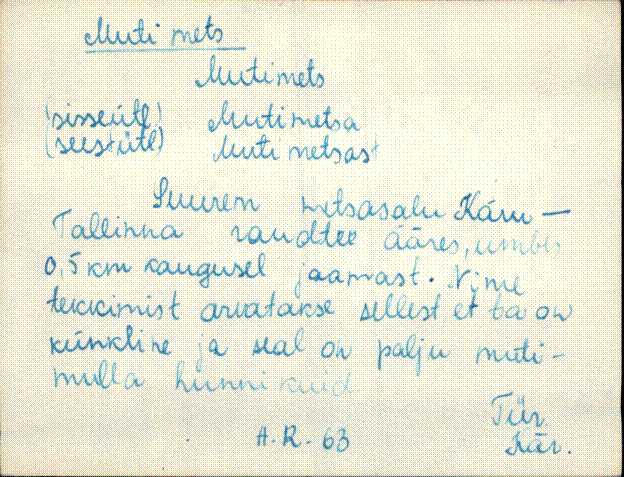 Muti mets
Mutimets
(sisseütl) Mutimetsa
(seestütl) Mutimetsast
Suurem metsasalu Käru –
Tallinna raudtee ääres, umbes
0,5 km kaugusel jaamast. Nime
tekkimist arvatakse sellest et ta on
künkline ja seal on palju muti-
mulla hunnikuid
Tür.
A.R. 63 Kär.